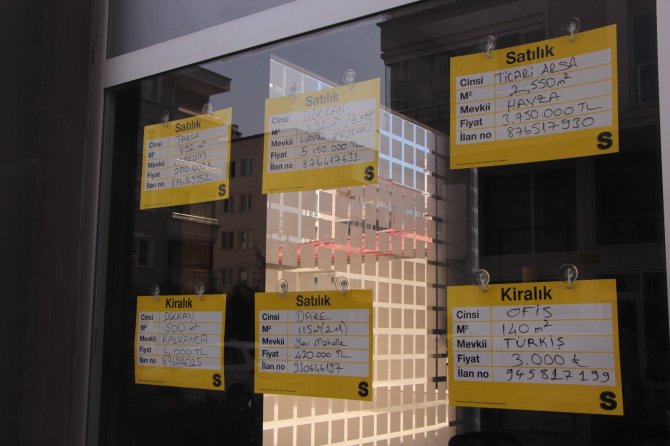 Satılık
Cinsi TARLA
M²
Mevkii
Fiyat 200.000 TL
İlan no
S
Satılık
Cinsi DÜKKAN
M²
Mevkii HAVZA MEYDAN
Fiyat 5.150.000 TL
İlan no 876417632
S
Satılık
Cinsi TİCARİ ARSA
M² 2,550 m²
Mevkii HAVZA
Fiyat 3,750.000 TL
İlan no 876517930
S
Kiralık
Cinsi DÜKKAN
M² 500 m²
Mevkii KALKANCA
Fiyat 6.000 TL
İlan no
S
Satılık
Cinsi DAİRE
M² 115 m² (2+1)
Mevkii Yeni Mahalle
Fiyat 420.000 TL
İlan no 930646197
S
Kiralık
Cinsi OFİS
M² 140 m²
Mevkii TÜRKİŞ
Fiyat 3.000 ₺
İlan no 945817199
S